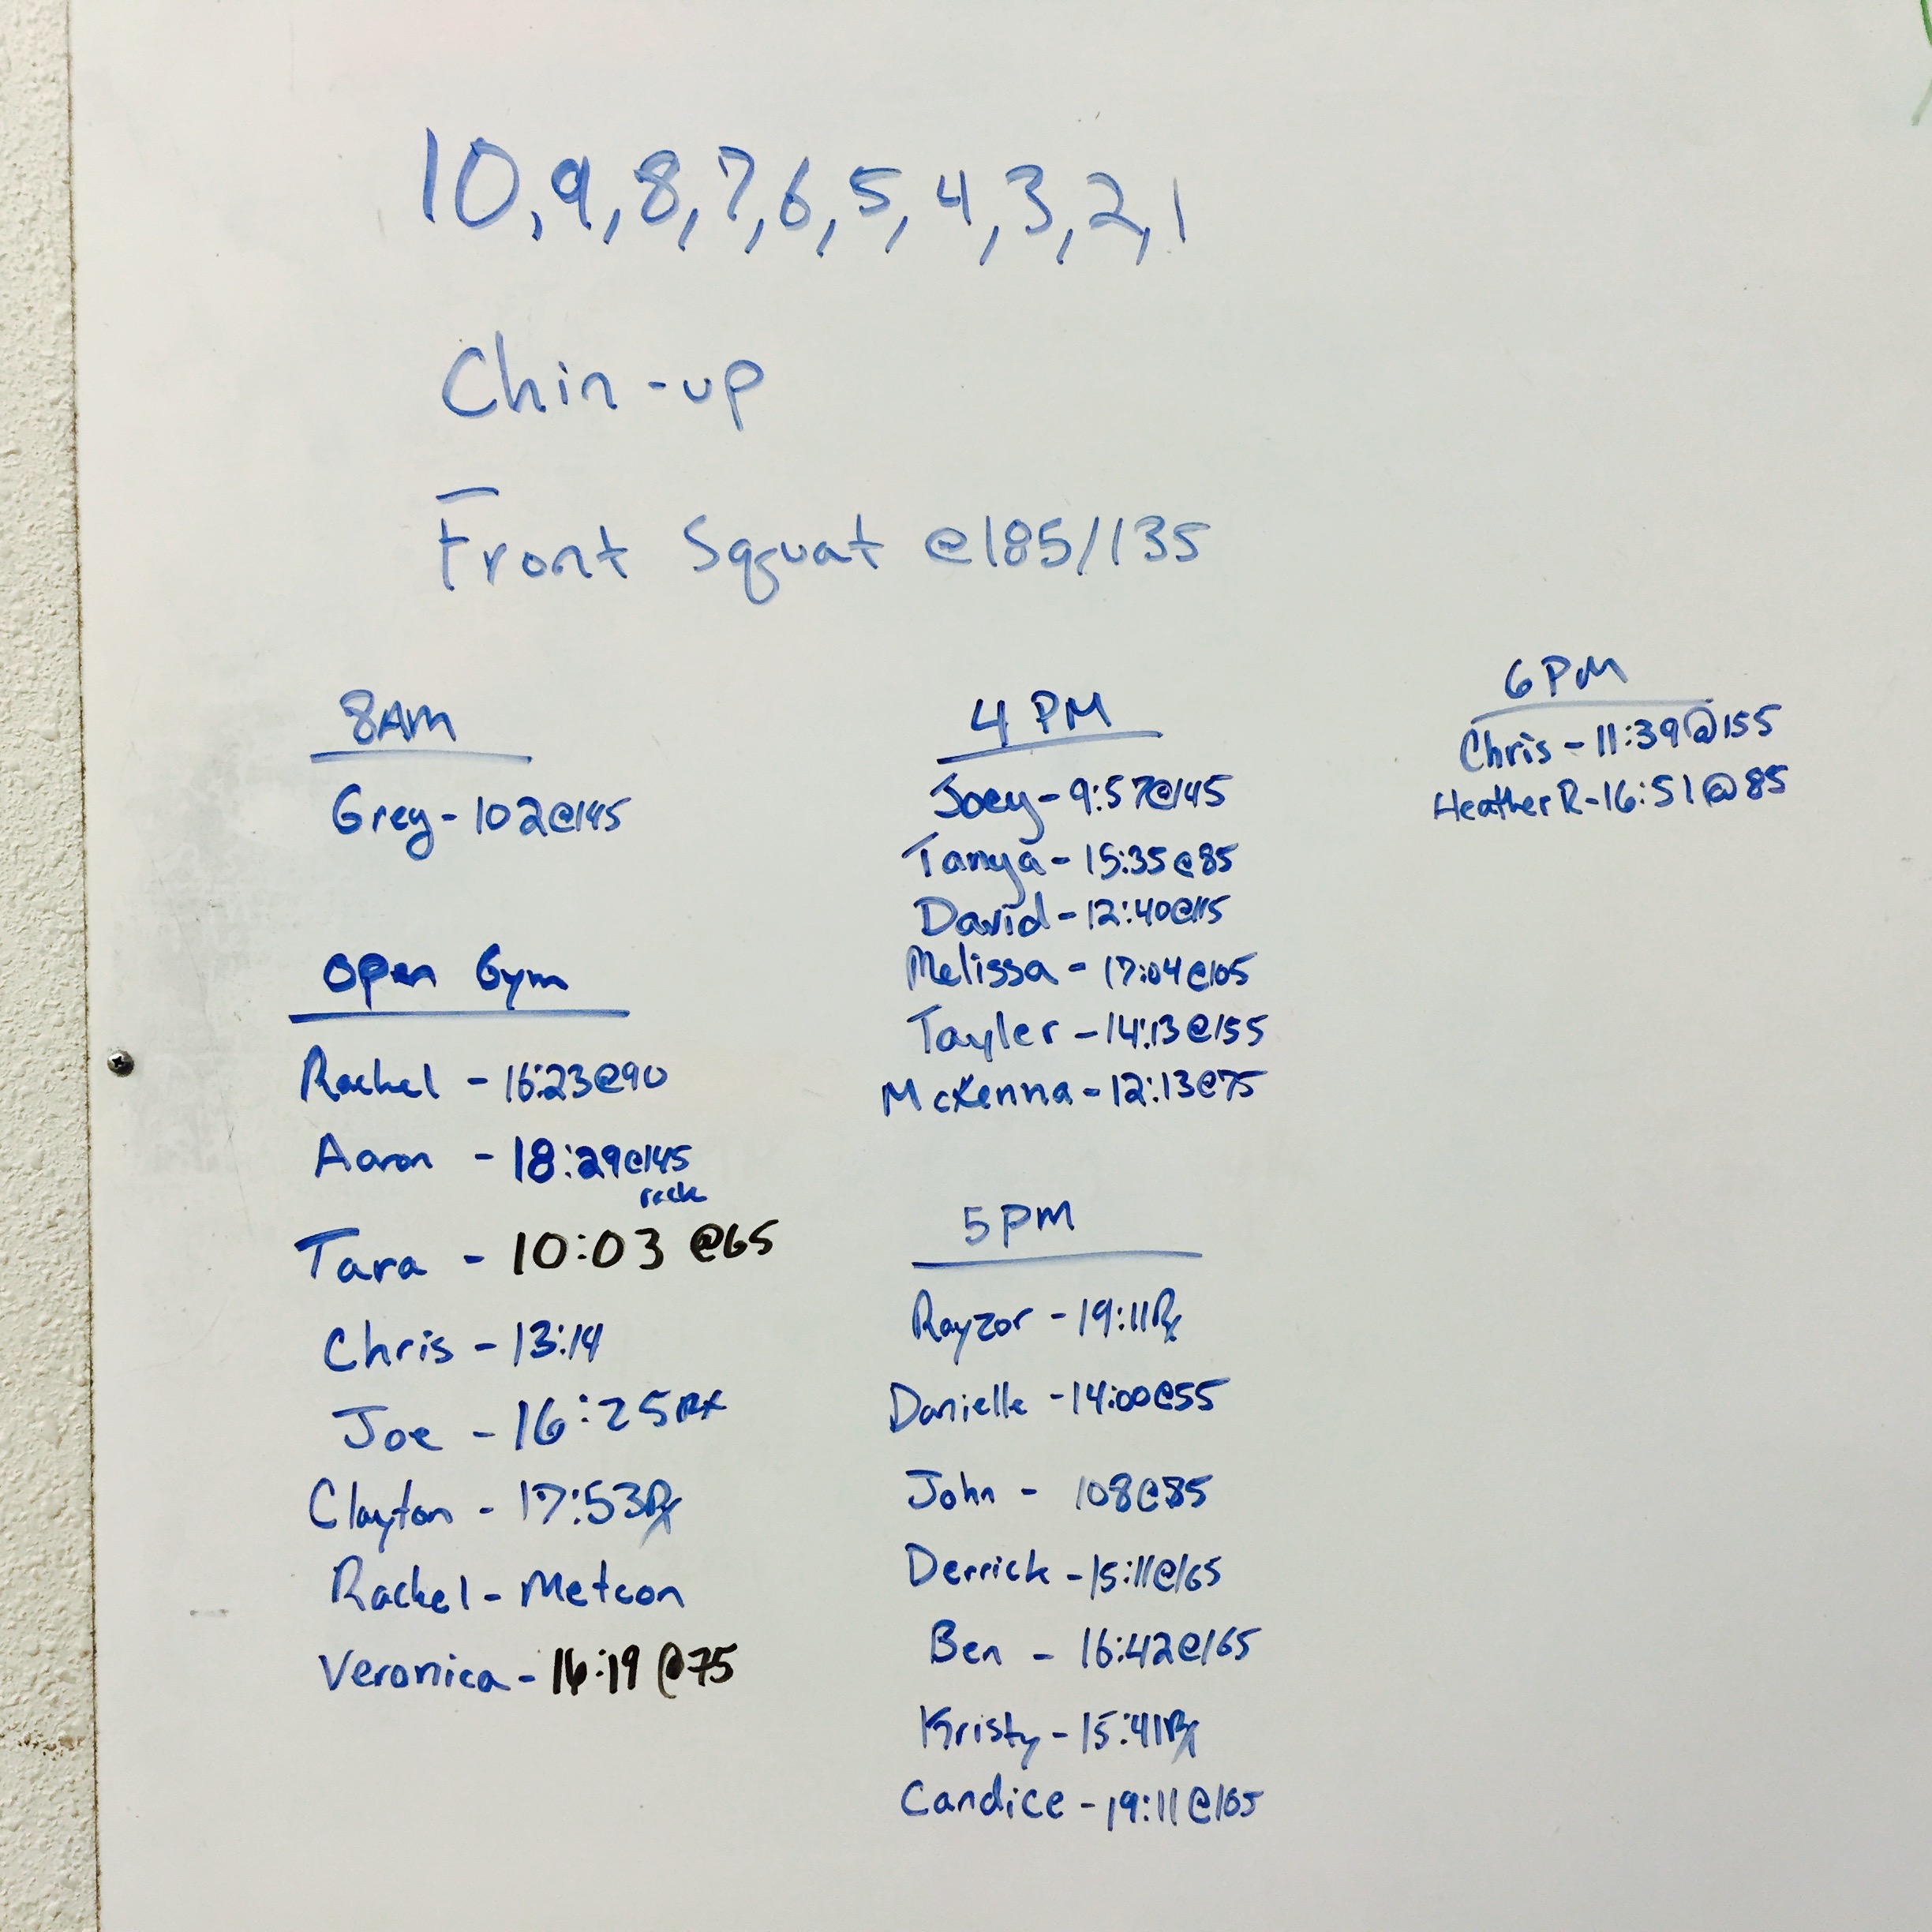 10, 9, 8, 7, 6, 5, 4, 3, 2, 1
Chin-up
Front Squat @185/135
8AM
Greg - 102@145
Open Gym
Rachel - 16:23@90
Aaron - 18:29@145
rack
Tara - 10:03 @65
Chris - 13:14
Joe - 16:25 Rx
Clayton - 17:53 Rx
Rachel - Metcon
Veronica - 16:19 @75
4 PM
Joey - 9:57@145
Tanya - 15:35@85
David - 12:40@115
Melissa - 17:04@105
Tayler - 14:13@155
McKenna - 12:13@75
5PM
Rayzor - 19:11 Rx
Danielle - 14:00@55
John - 108@85
Derrick - 15:11@165
Ben - 16:42@165
Kristy - 15:41 Rx
Candice - 19:11
6 PM
Chris - 11:39@155
Heather R - 16:51@85